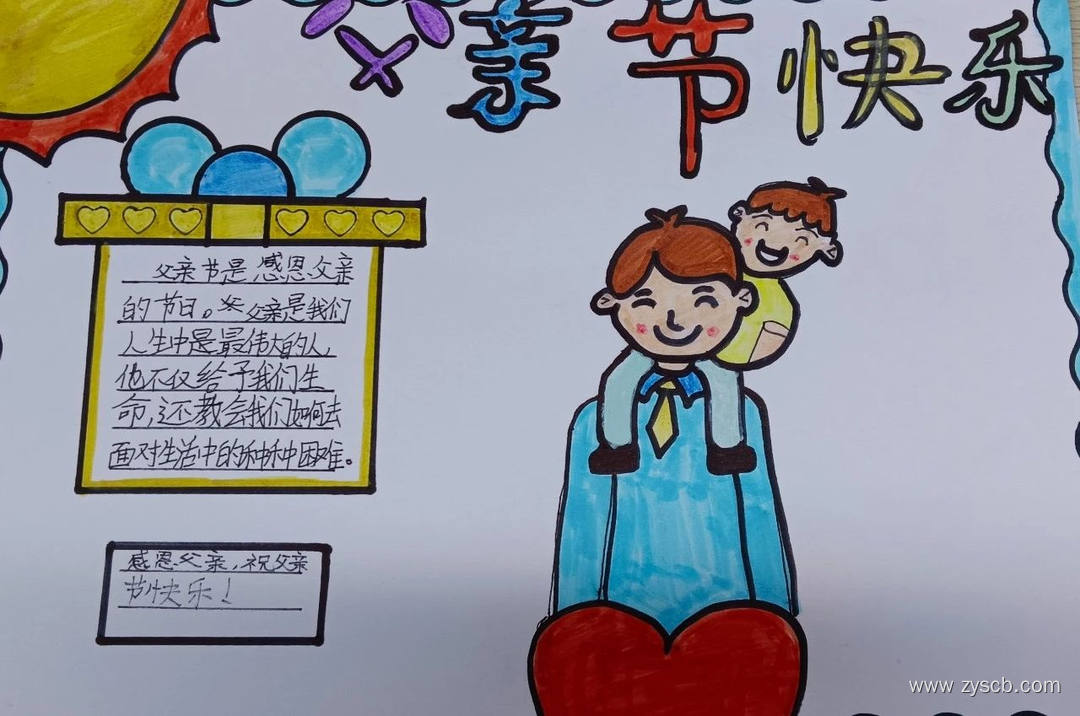 父亲节快乐
父亲节是感恩父亲
的节日。父亲是我们
人生中是最伟大的人,
他不仅给予我们生
命,还教会我们如何去
面对生活中的种种困难。
感恩父亲,祝父亲
节快乐!
www.zyscb.com